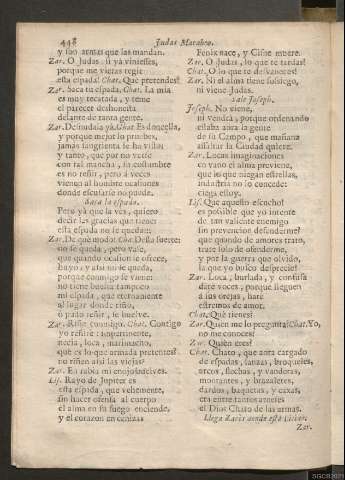 448 Judas Macabeo.
y son armas que las mandan.
Zar. O Judas, si yà viniesses,
porque me vieras regir
esta espada! Chat. Què pretendes?
Zar. Saca tu espada. Chat. La mia
es muy recatada, y teme
el parecer deshonesta
delante de tanta gente.
Zar. Desnudala yà. Chat. Es doncella,
y porque mejor lo pruebes,
jamàs sangrienta se ha visto;
y tanto, que por no verse
con tal mancha, su costumbre
es no reñir, pero à veces
viendo al hombre ocasiones
donde escusarle no puede.
Saca la espada.
Pero yà que la ves, quiero
decir las gracias que tienes
esta espada no se queda:
Zar. De què modo? Chat. Desta suerte:
no se queda, pero vale,
que quando ocasion se ofrece,
huyo, y ella no se queda,
porque conmigo se viene:
no tiene buelta tampoco
mi espada, que eternamente
al lugar donde riño,
ò pudo reñir, se buelve.
Zar. Riñe conmigo. Chat. Contigo
yo reñirè: impertinente,
necia, loca, marimacho,
què es lo que armada pretendes?
no riñen assi las viejas?
Zar. En rabia mi enojo enciendes.
Lis. Rayo de Jupiter es
esta espada, que vehemente,
sin hacer ofensa al cuerpo
el alma en su fuego enciende,
y el corazon en cenizas
Fenix nace, y Cisne muere.
Zar. O Judas, lo que te tardas!
Chat. O lo que te desvaneces!
Zar. Ni el alma tiene sossiego,
ni viene Judas.
Sale Joseph.
Joseph. No viene,
ni vendrà, porque ordenando
estaba aora la gente
de su Campo, que mañana
assaltar la Ciudad quiere.
Zar. Locas imaginaciones
en vano el alma previene,
que los que niegan estrellas,
industria no lo concede:
ciega estoy.
Lis. Què aquesto escucho!
es possible que yo intente
de tan valiente enemigo
sin prevencion defenderme?
que quando de amores trato,
trate solo de ofenderme,
y por la guerra que olvido,
la que yo busco desprecie!
Zar. Loca, burlada, y confusa
darè voces, porque lleguen
à sus orejas, harè
estremos de amor.
Chat. Què tienes?
Zar. Quien me lo pregunta? Chat. Yo,
no me conoces?
Zar. Quien eres?
Chat. Chato, que aora cargado
de espadas, lanzas, broqueles,
arcos, flechas, y vanderas,
montantes, y brazaletes,
dardos, baquetas, y caxas,
era entre tantos arneses
el Dios Chato de las armas.
Llega Zarès donde està Lisias.
Zar.